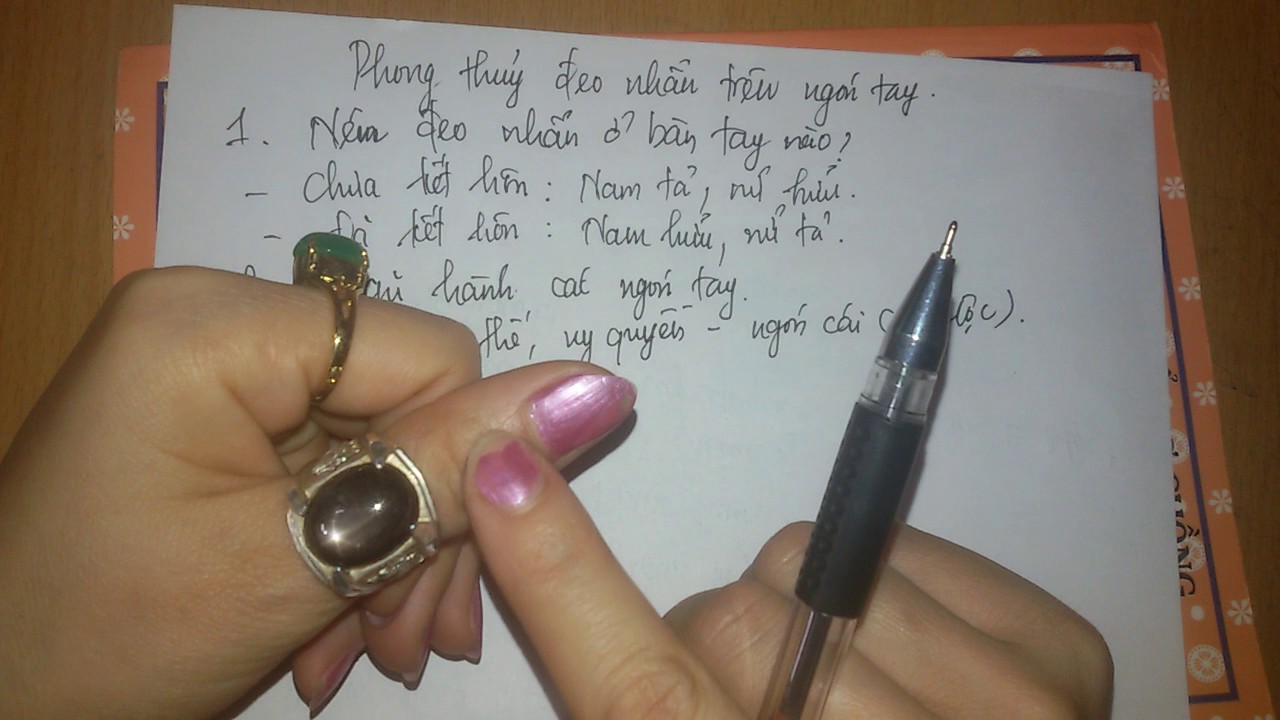 Phong thuỷ đeo nhẫn trên ngón tay.
1. Nên đeo nhẫn ở bàn tay nào?
- Chưa kết hôn : Nam tả, nữ hữu.
- Đã kết hôn : Nam hữu, nữ tả.
hành các ngón tay.
thế, uy quyền - ngón cái ( lộc).